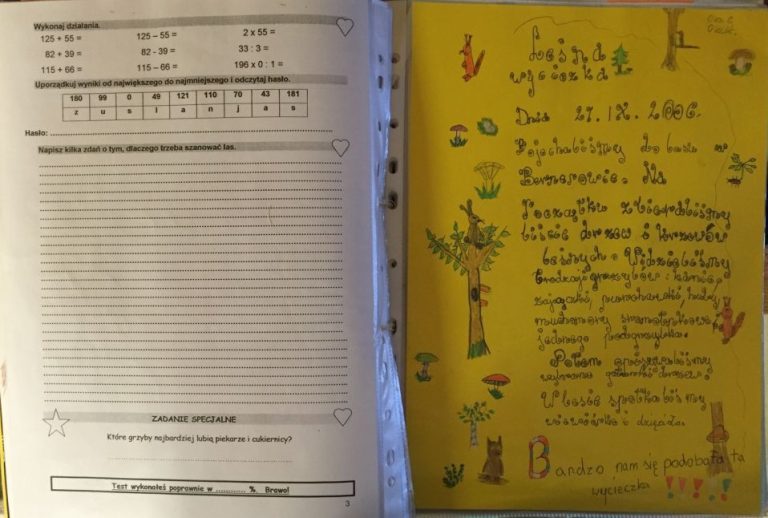 Wykonaj działania.
125 + 55 = 125 – 55 = 2 x 55 =
82 + 39 = 82 - 39 = 33 : 3 =
115 + 66 = 115 – 66 = 196 x 0 : 1 =
Uporządkuj wyniki od największego do najmniejszego i odczytaj hasło.
180 99 0 49 121 110 70 43 181
z u s ł a n j a s
Hasło:
Napisz kilka zdań o tym, dlaczego trzeba szanować las.
ZADANIE SPECJALNE
Które grzyby najbardziej lubią piekarze i cukiernicy?
Test wykonałeś poprawnie w ............ %. Brawo!
3
Leśna
wycieczka
Dnia 27. IX. 2006.
Pojechaliśmy do lasu w
Bernerowie. Na
Początku zbieraliśmy
liście drzew i krzewów
leśnych. Widzieliśmy
jednego podgrzybka.
Potem
W lesie spotkaliśmy
wiewiórkę i dzięcioła.
Bardzo nam się podobała ta
wycieczka !!!!!